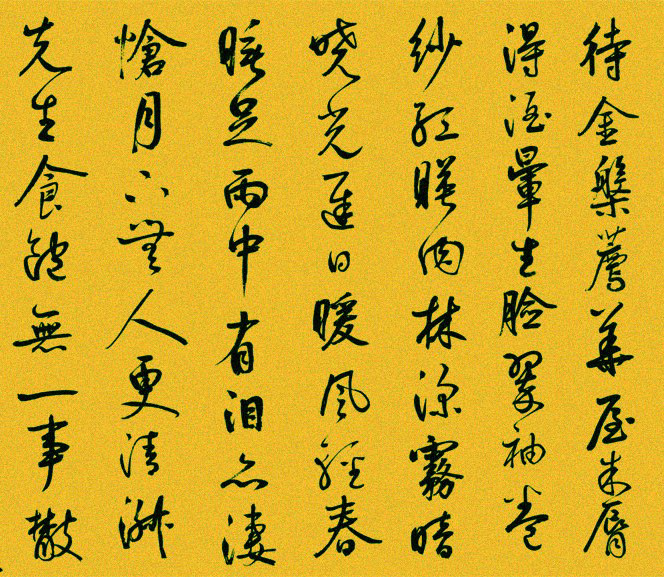 待金槃薦華屋朱脣
得酒暈生臉翠袖卷
紗紅暎肉林深霧暗
曉光遲日暖風輕春
睡足雨中有泪亦淒
愴月下無人更清淑
先生食飽無一事散